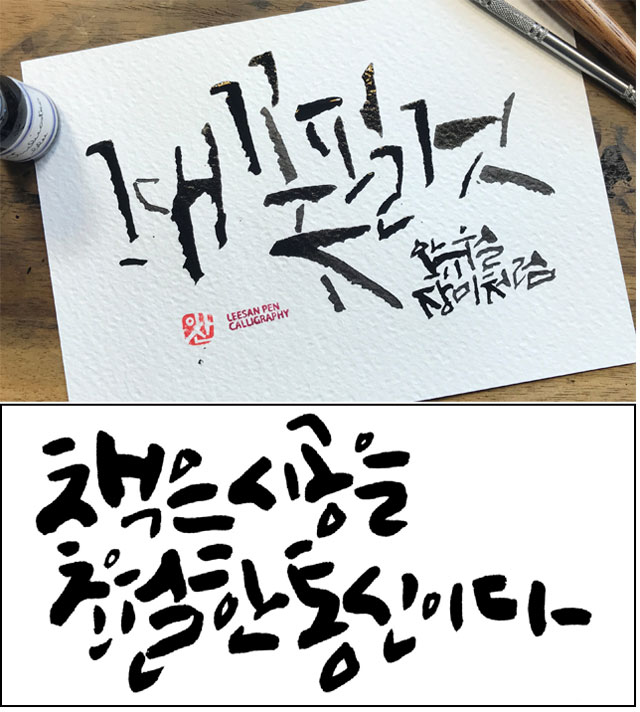 그대 꽃필것
오뉴월
장미처럼
LEESAN PEN
CALLIGRAPHY
책은 시공을
초월한 통신이다